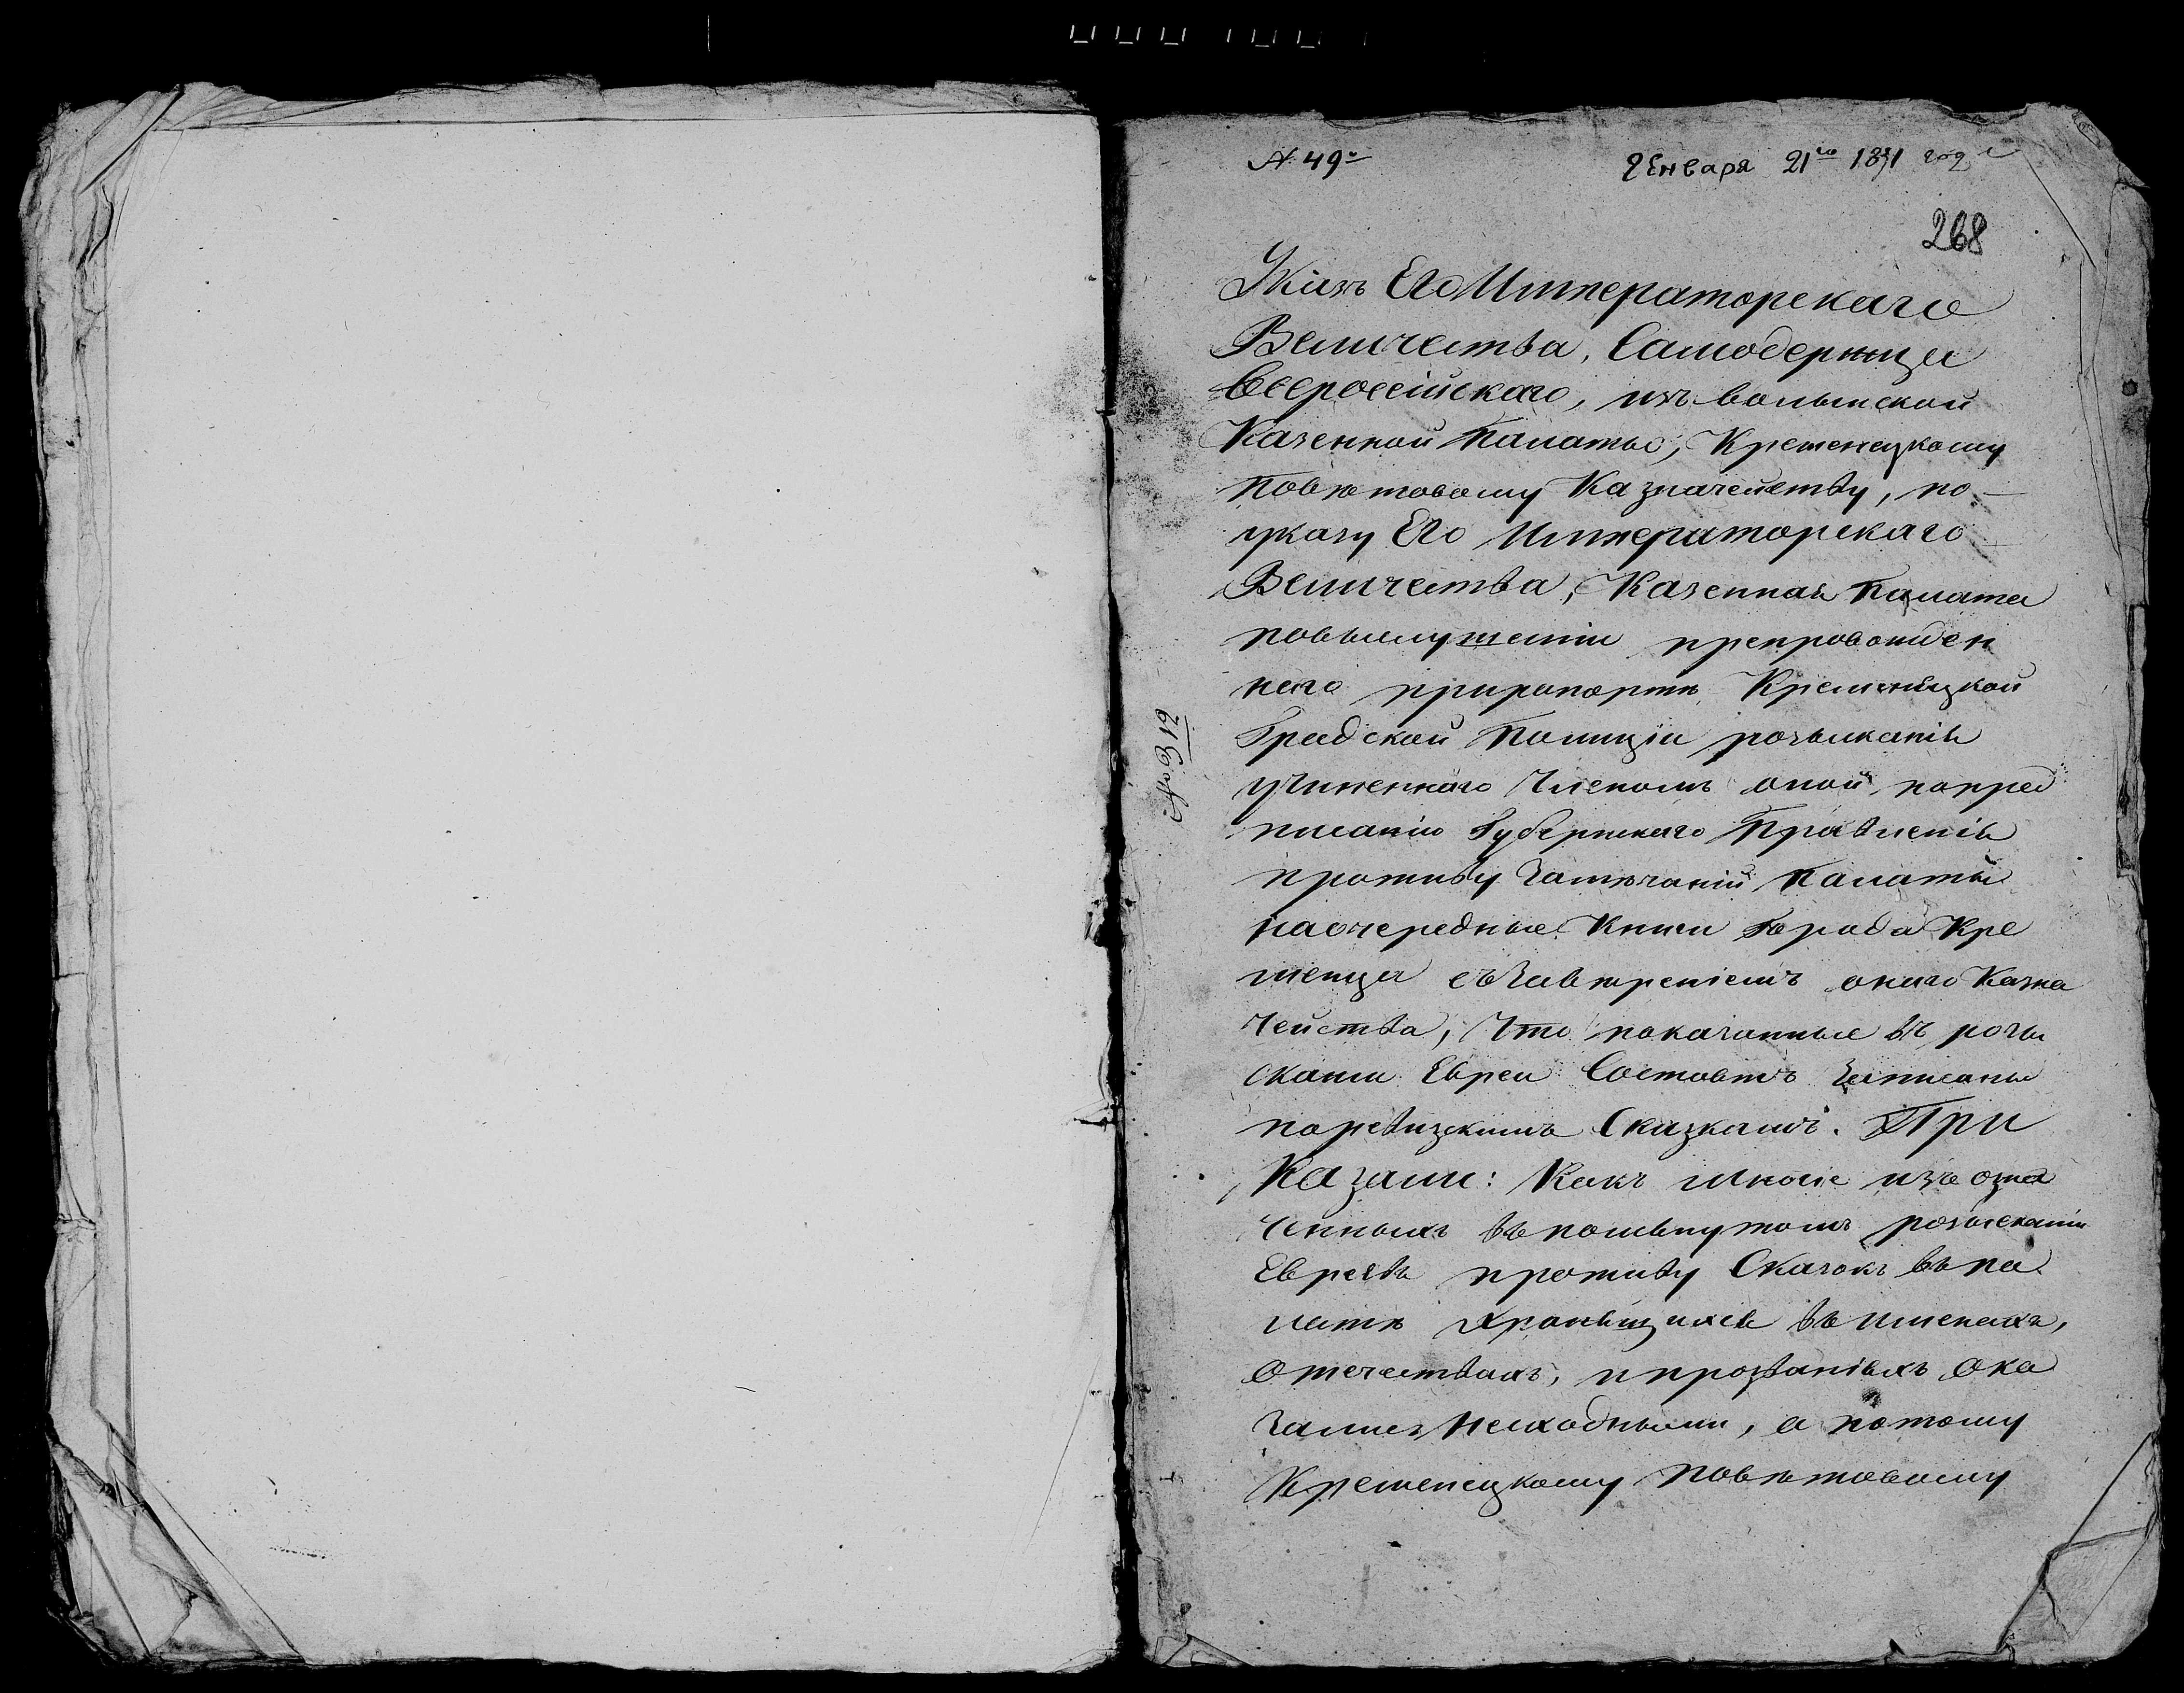 № 49й
Генваря 21го 1831 года
268
Указъ Его Императорскаго
Величества, Самодержца
Всероссійскаго, изъ волынской
Казенной Палаты, Кременецкому
Повѣтовому Казначейству, по
указу Его Императорскаго
Величества, Казенная Палата
повыслушаніи препровожден
наго прирапортѣ Кременецкой
Градской Полиціи розысканія
учиненнаго Членомъ оной, попред
писанію Губернскаго Правленія
противу Замѣчаній Палаты
наочередные Книги Города Кре
менца съЗавѣреніемъ онаго Казна
чейства, Что показанные въ розы
сканіи Евреи Состоятъ Записаны
поревизскимъ Сказкамъ. При
Казали: Какъ Многіе изъ озна
ченныхъ въ помянутомъ розысканіи
Евреявъ противу Сказокъ въ па
латѣ хранящихся въ именахъ,
отечествахъ, и прозваніяхъ ока
Зались Несходными, а потому
Кременецкому Повѣтовому
№ 312